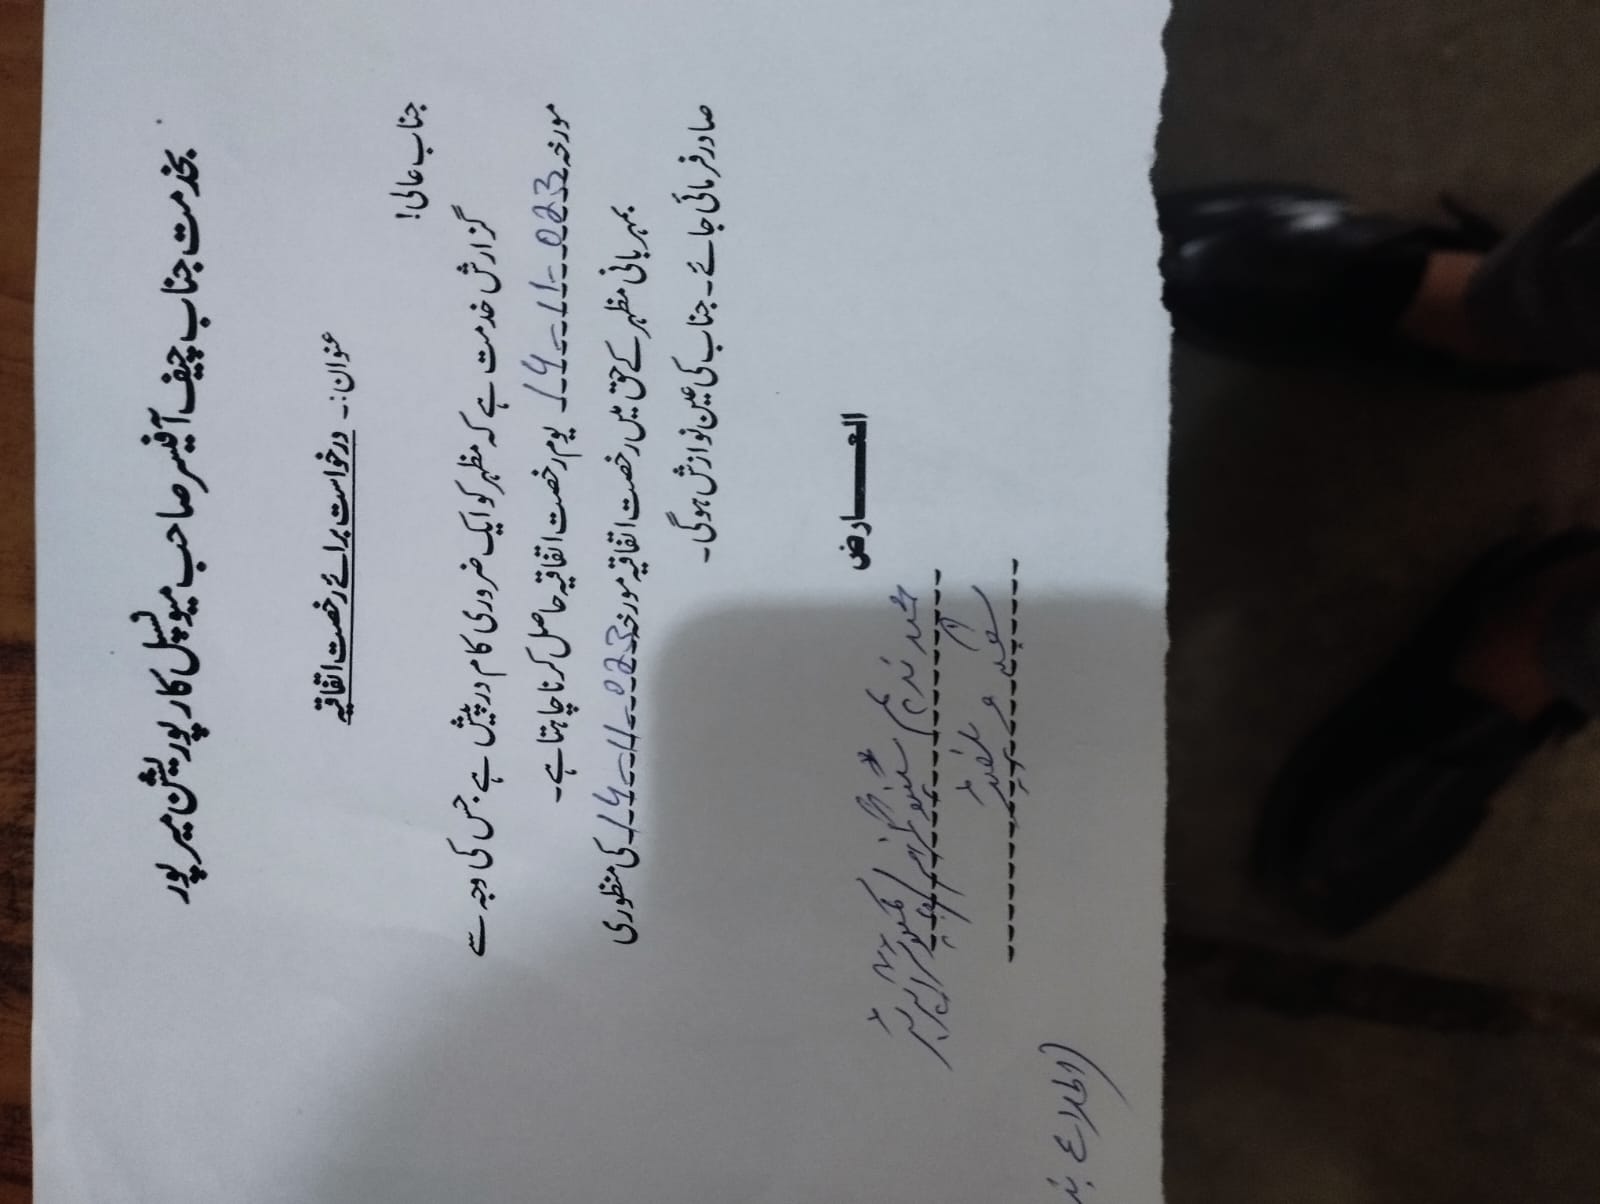 بخدمت جناب چیف آفیسر صاحب میونسپل کارپوریشن میرپور
عنوان:۔ درخواست برائے رخصت اتفاقیہ
جناب عالی!
گزارش خدمت ہے کہ مظہر کو ایک ضروری کام درپیش ہے جس کی وجہ سے
مورخہ 14-11-023 یوم رخصت اتفاقیہ حاصل کرنا چاہتا ہے۔
بمہربانی مظہر کے حق میں رخصت اتفاقیہ مورخہ 14-11-023 کی منظوری
صادر فرمائی جائے۔ جناب کی عین نوازش ہوگی۔
العـــــارض
ندیم
(اطلاع